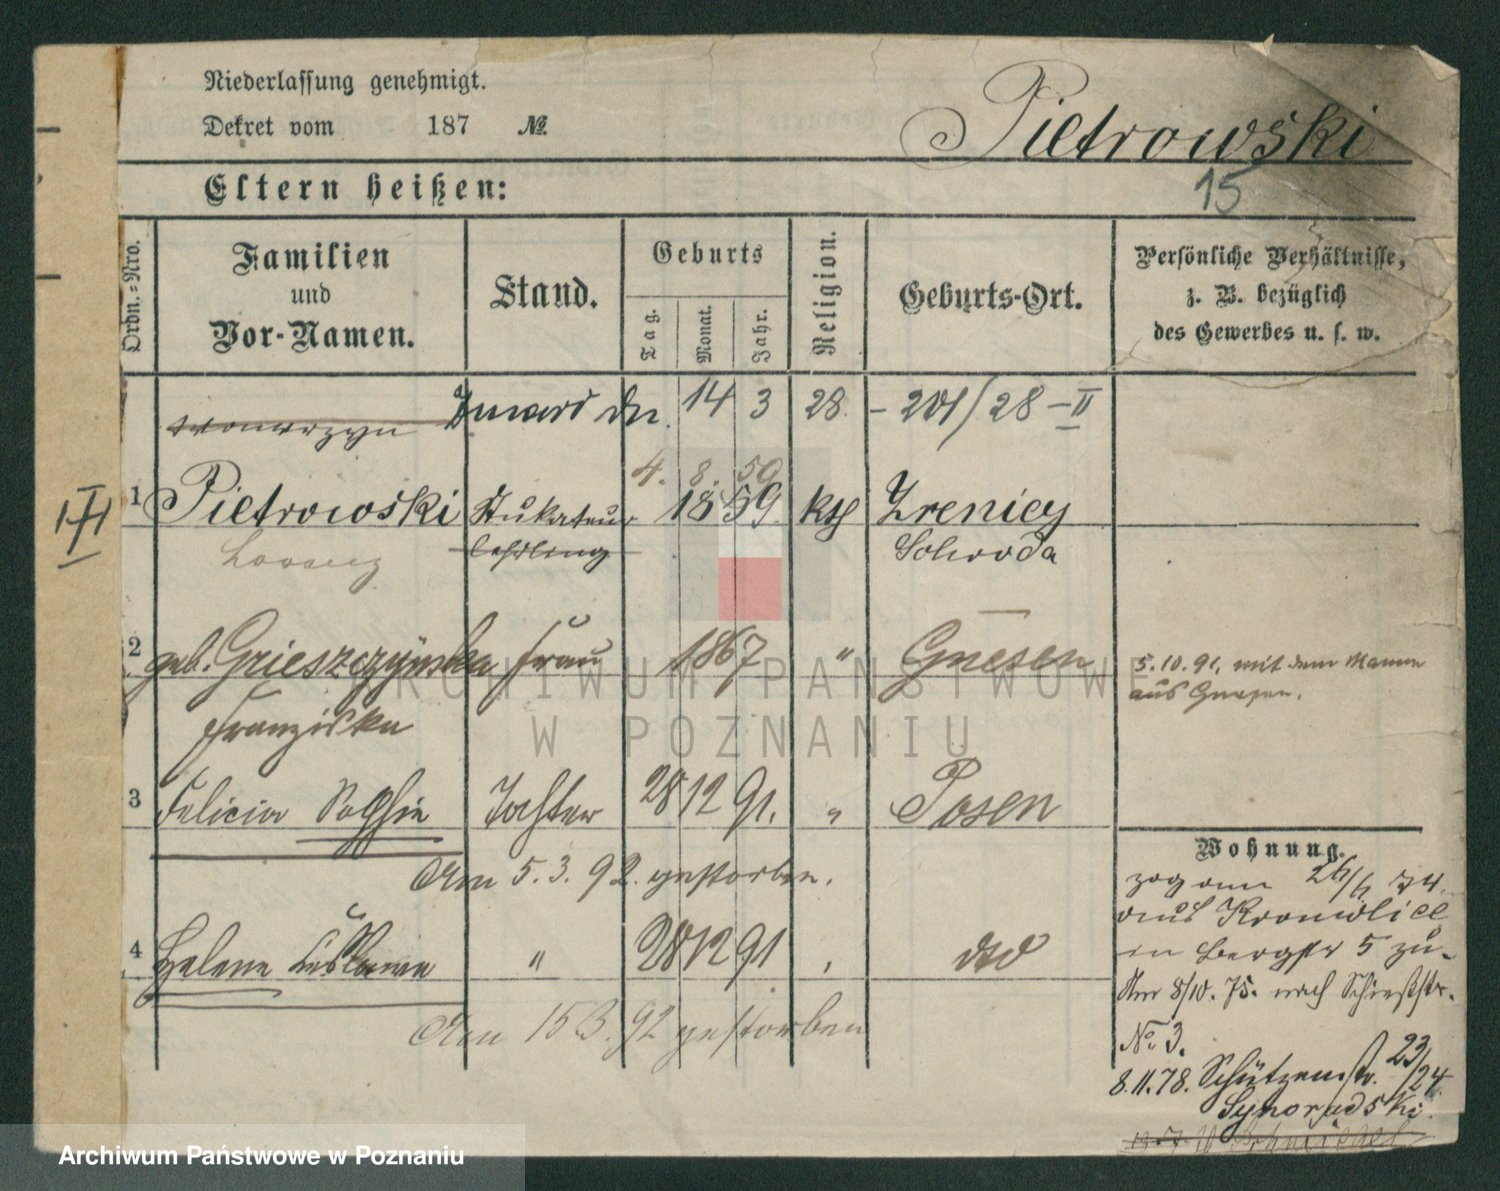 Niederlassung genehmigt.
Dekret vom 187 №
Pietrowski
15
Eltern heißen:
Ordn.-Nro.
Familien
und
Vor-Namen.
Stand.
Geburts
Tag.
Monat.
Jahr.
Religion.
Geburts-Ort.
Persönliche Verhältnisse,
z. B. bezüglich
des Gewerbes u. s. w.
14 3 28. - 201/28 - II
Wawrzyn
4. 8. 59
III
1 Pietrowski Stukateur 1859. kth Zrenicy
Lorenz Lehrling Schroda
2 geb. Grieszczynska Frau 1867 " Gnesen
5.10.91. mit dem Manne
aus Gnesen.
Franziska
3 Felicia Sophie Tochter 28 12 91. " Posen
Am 5.3.92. gestorben.
4 Helene " 28 12 91 dto
Am 15 3.92 gestorben
Wohnung.
zog am 26/6 74.
aus
in Bergstr 5 zu-
Am 8/10. 75. nach Schießstr.
No 3.
8.11.78. Schützenstr. 23/24
Synoradski.
ARCHIWUM PAŃSTWOWE
W POZNANIU
Archiwum Państwowe w Poznaniu